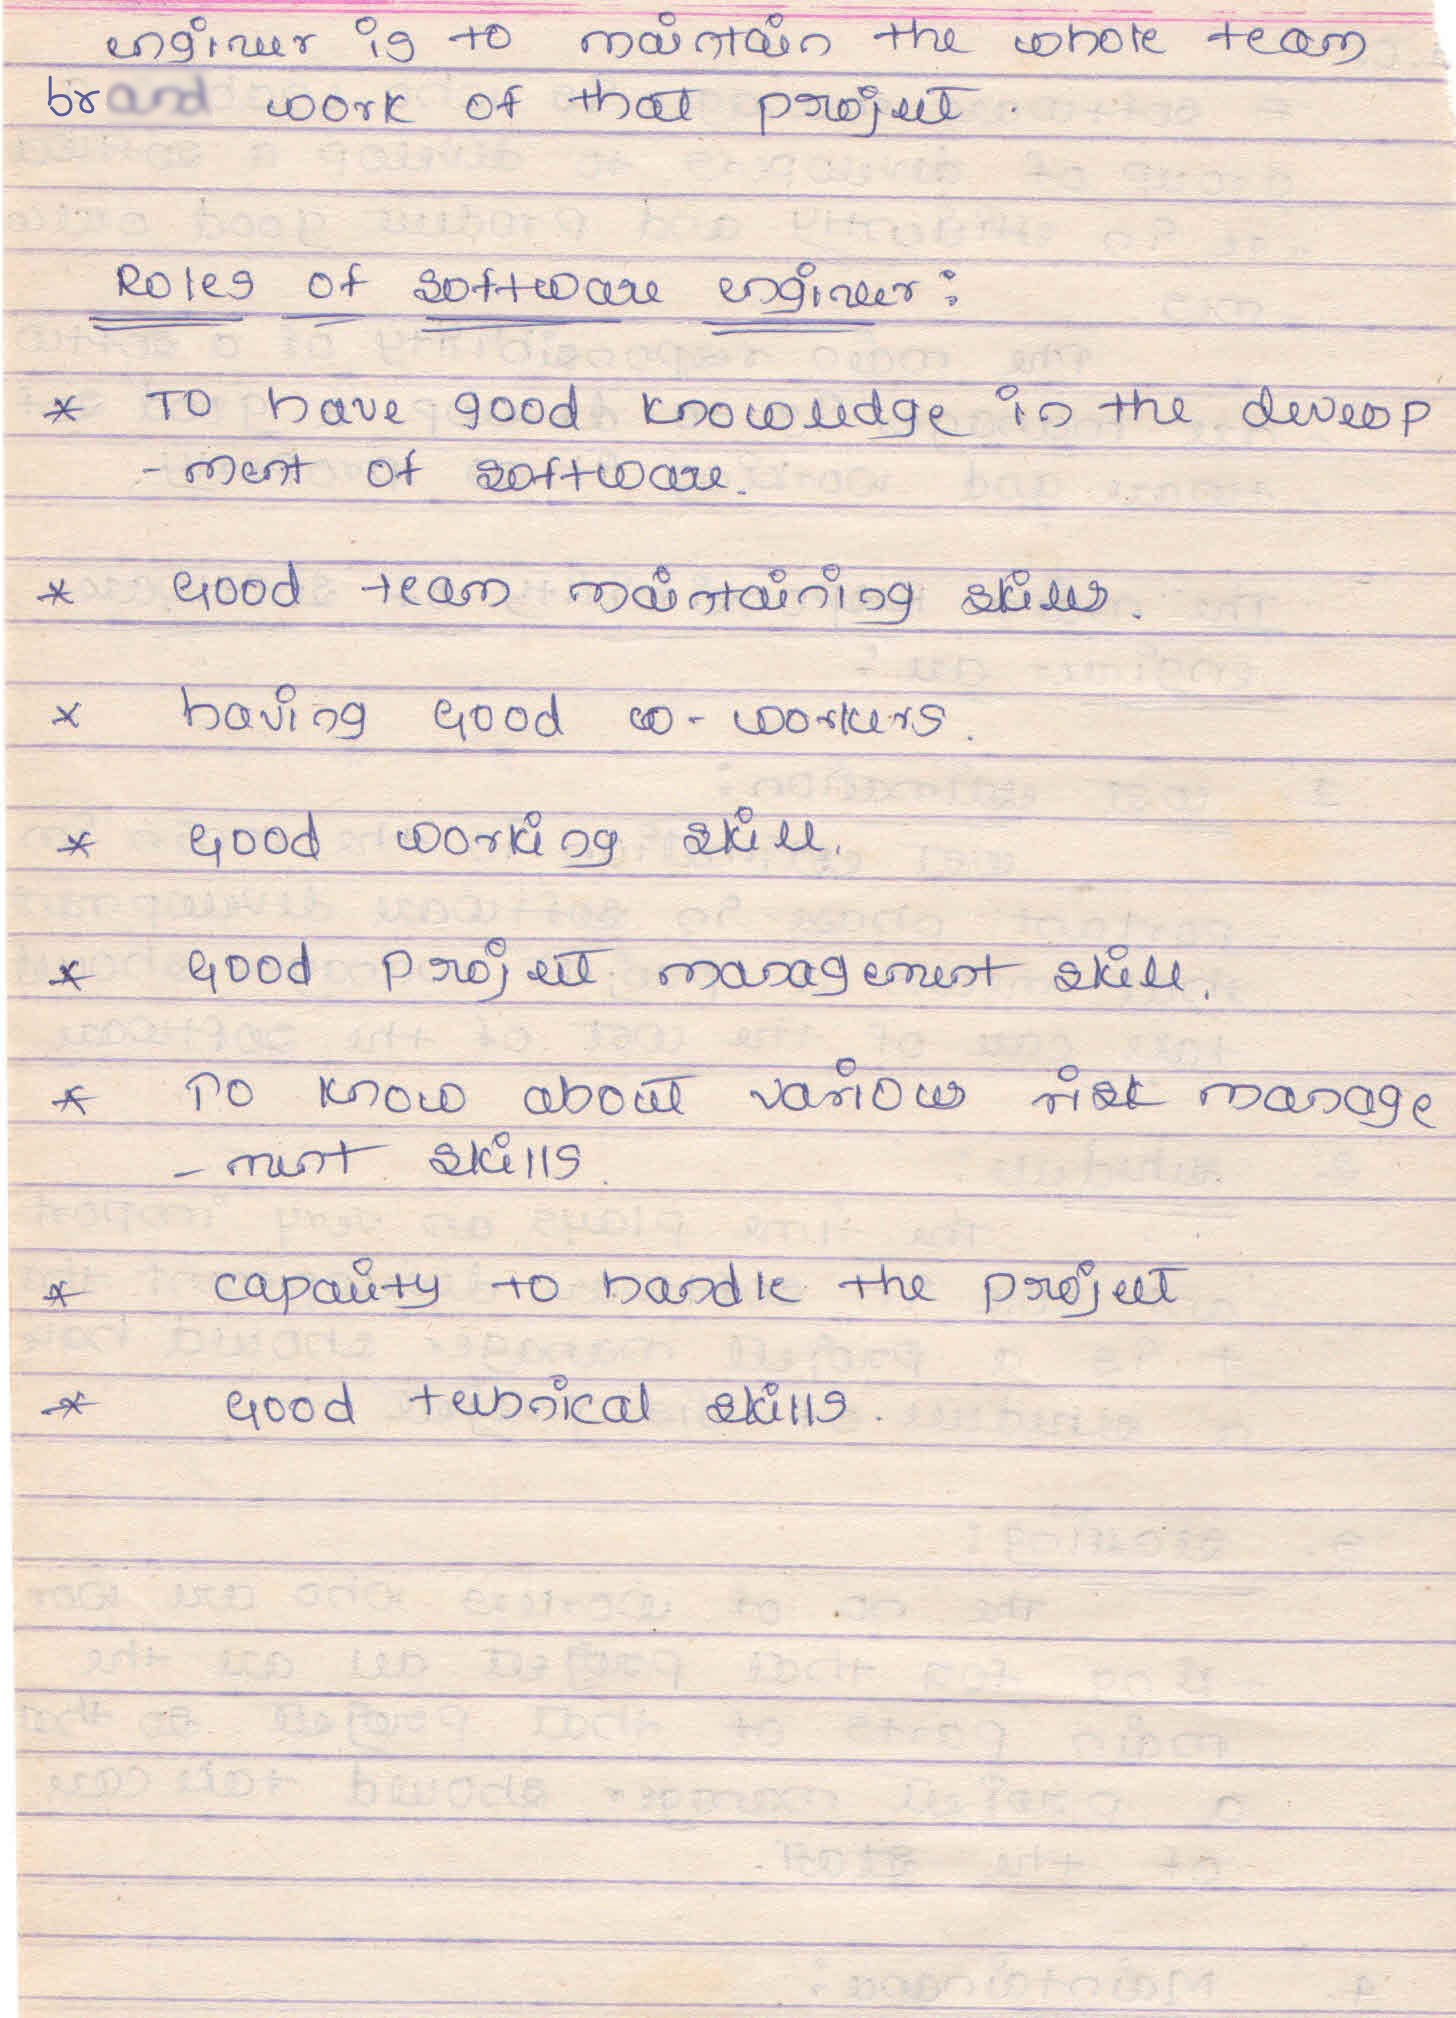 engineer is to maintain the whole team
work of that project.
Roles of software engineer:
* To have good knowledge in the develop
-ment of software.
* Good team maintaining skills.
* having good co-workers.
* Good working skill.
* Good project management skill.
* To know about various risk manage
-ment skills.
* capacity to handle the project
* Good technical skills.